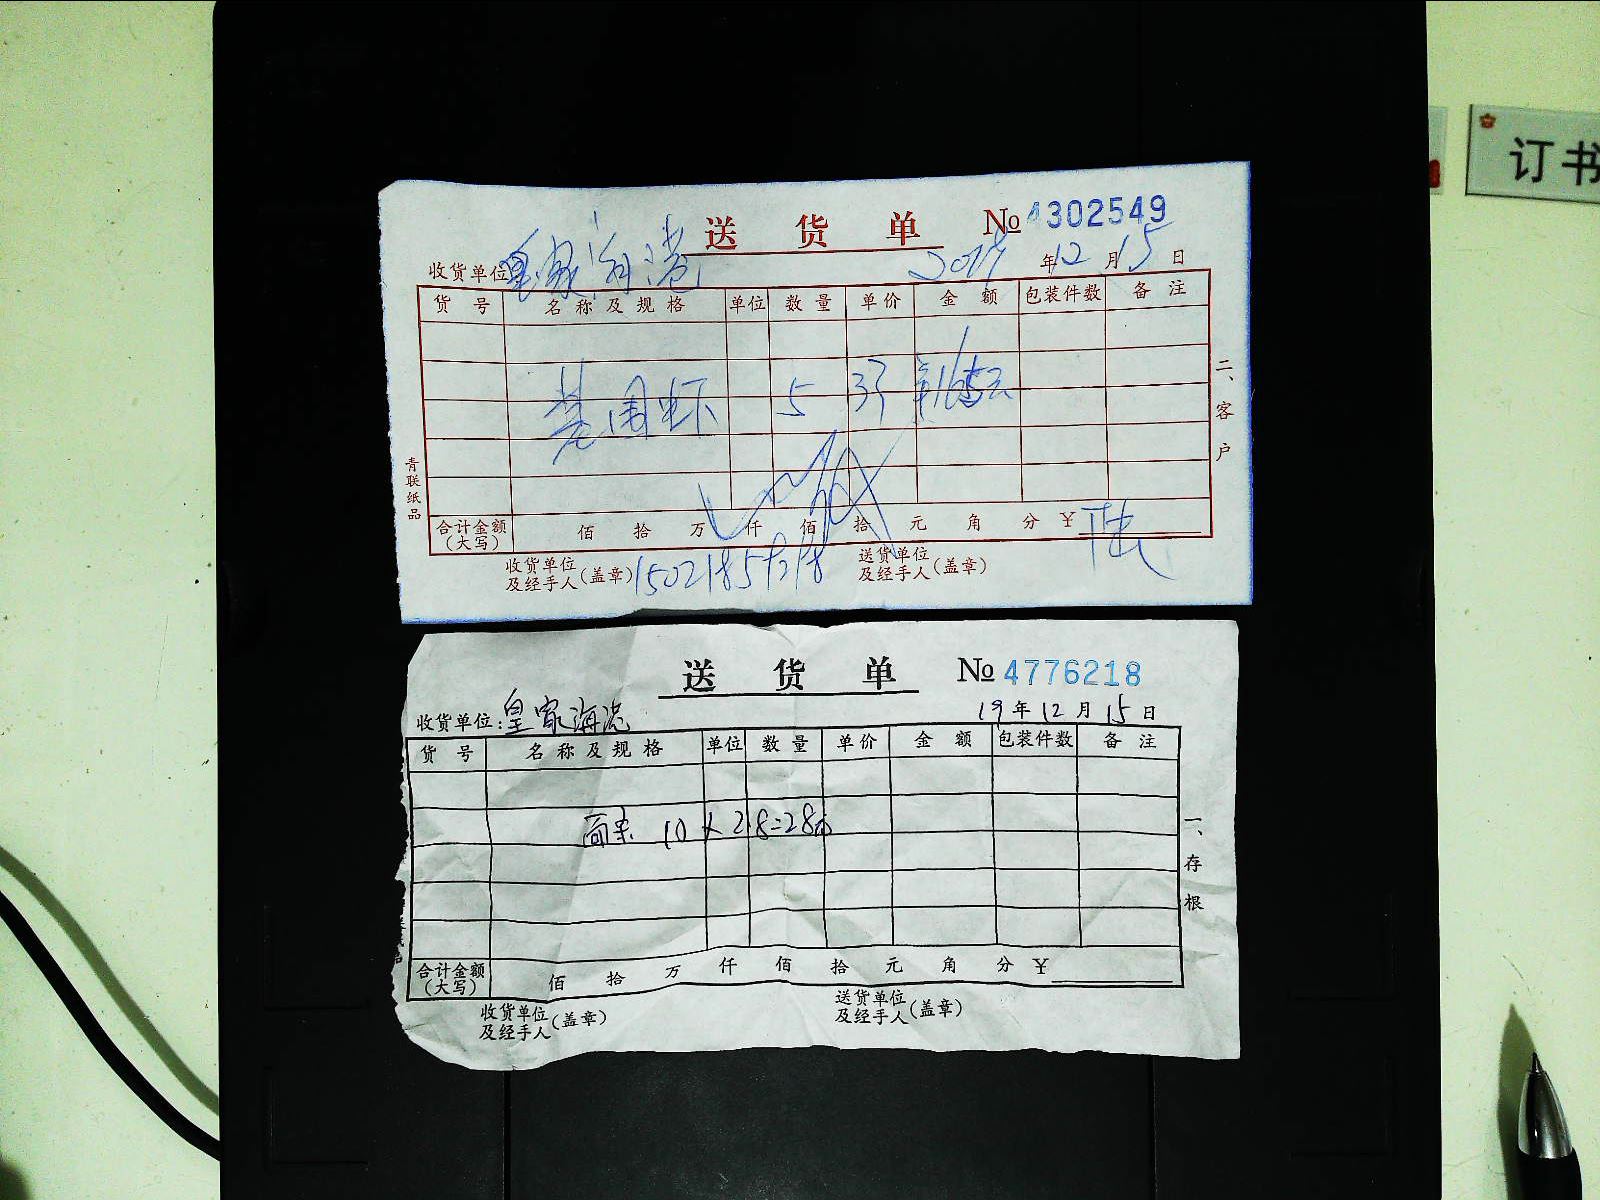 订书
送货单 № 4302549
收货单位 皇家海港 2019年12月15日
货号 名称及规格 单位 数量 单价 金额 包装件数 备注
基围虾 5 33 165元
二、客户
青联纸品
合计金额(大写) 佰 拾 万 仟 佰 拾 元 角 分 ¥
收货单位及经手人(盖章) 送货单位及经手人(盖章)
送货单 № 4776218
收货单位:皇家海港 19年12月15日
货号 名称及规格 单位 数量 单价 金额 包装件数 备注
10×28=280
一、存根
合计金额(大写) 佰 拾 万 仟 佰 拾 元 角 分 ¥
收货单位及经手人(盖章) 送货单位及经手人(盖章)